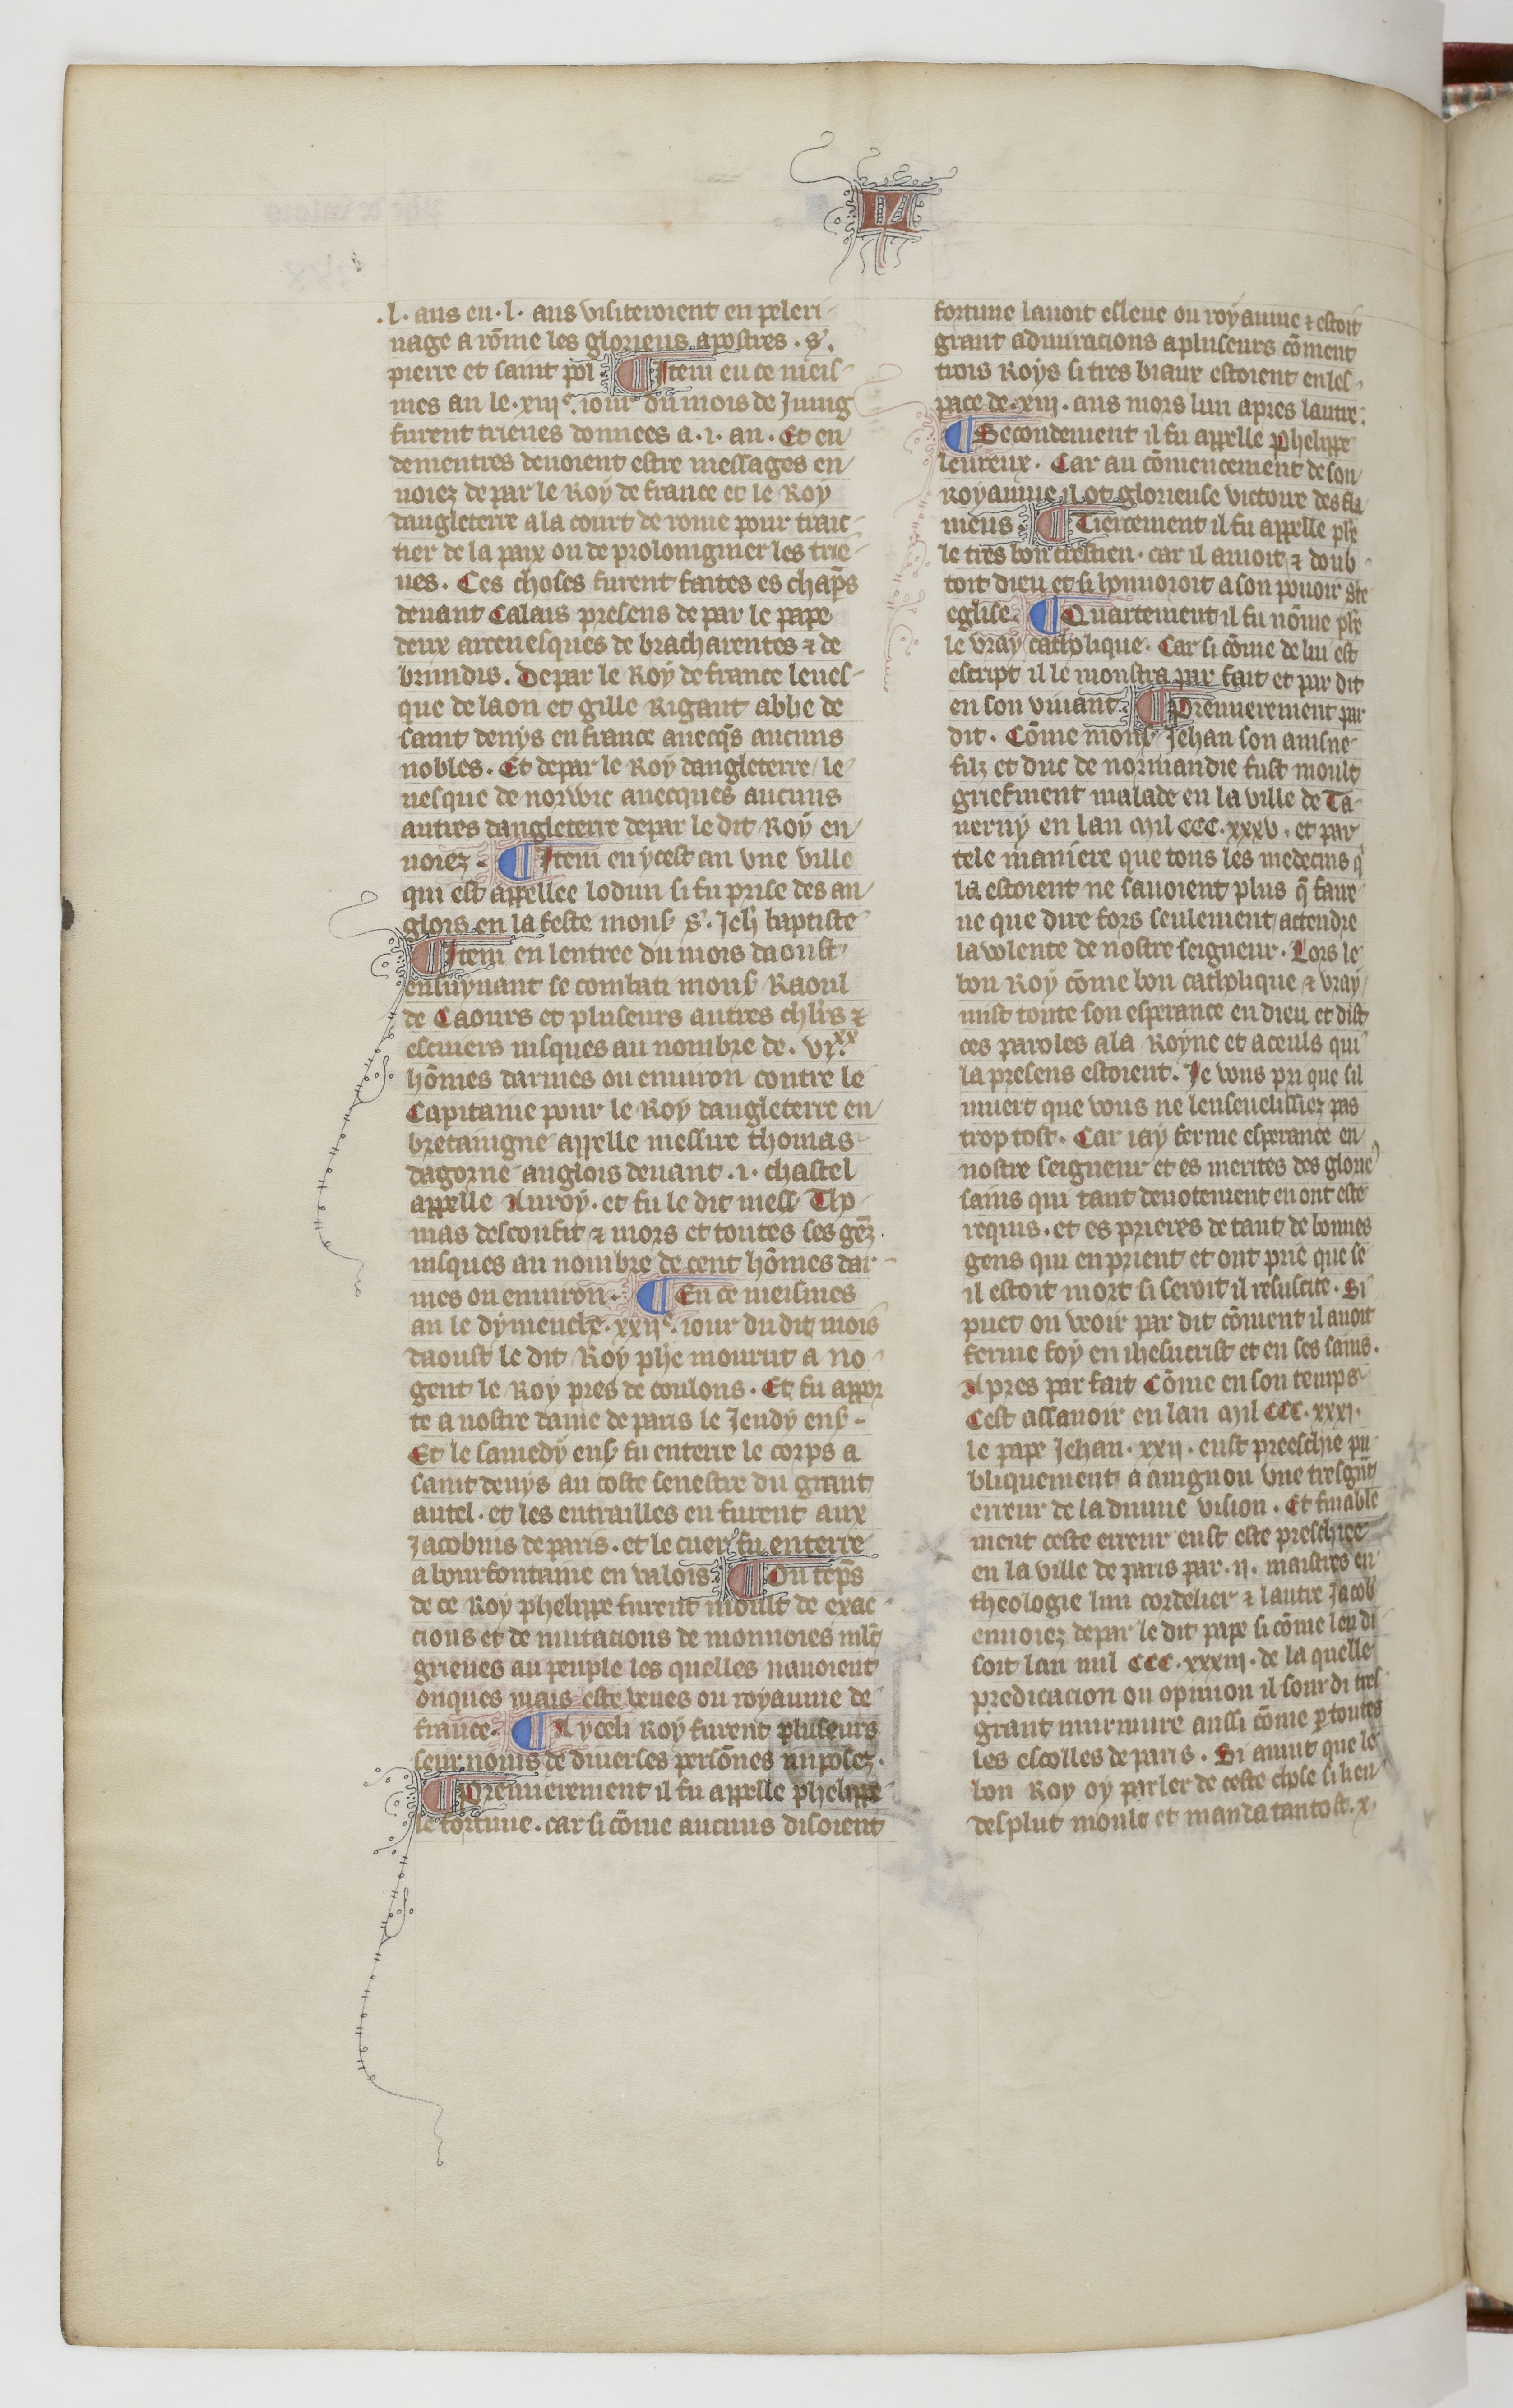 .l. ans en .l. ans visiteroient en peleri-
nage a rōme les glorieus apostres . s'.
pierre et saint pol ¶ Item en ce meis-
mes an le .xiiie. iour du mois de Juing
furent trieues donnees a .i. an. Et en
dementres deuoient estre messages en-
uoiez de par le Roy de france et le Roy
dangleterre a la court de rome pour traic-
tier de la paix ou de prolonigner les trie-
ues. Ces choses furent faites es chāps
deuant Calais presens de par le pape
deux arceuesques de bracharentes & de
brindis. De par le Roy de france leues-
que de laon et gille Rigaut abbe de
saint denys en france auecq̄s aucuns
nobles. Et de par le Roy dangleterre le-
uesque de norwic auecques aucuns
autres dangleterre de par le dit Roy en-
uoiez. ¶ Item en ycest an vne ville
qui est appellee lodun si fu prise des an-
glois en la feste mons' s'. Jeh' baptiste
¶ Item en lentree du mois daoust
ensuyuant se combati mons' Raoul
de Caours et pluseurs autres chlr's &
escuiers iusques au nombre de .vixx.
hōmes darmes ou enuiron contre le
Capitaine pour le Roy dangleterre en
bretaingne appelle messire thomas
dagorne anglois deuant .i. chastel
appelle Auroy. et fu le dit mess' Tho-
mas desconfit & mors et toutes ses gēz
iusques au nombre de cent hōmes dar-
mes ou enuiron. ¶ En ce meismes
an le dymenche .xxiie. iour du dit mois
daoust le dit Roy phe mourut a no-
gent le Roy pres de coulons. Et fu appor
te a nostre dame de paris le Jeudy ens'.
Et le samedy ens' fu enterre le corps a
saint denys au coste senestre du grant
autel. et les entrailles en furent aux
Jacobins de paris. et le cuer fu enterre
a bourfontaine en valois ¶ Ou tēps
de ce Roy phelippe furent moult de exac-
cions et de mutacions de monnoies mlt̄
grieues au peuple les quelles nauoient
onques mais este veues ou royaume de
france. ¶ A yceli Roy furent pluseurs
seurnoms de diuerses persōnes imposez.
¶ Premierement il fu appelle phelippe
le fortune. car si cōme aucuns disoient
fortune lauoit esleue ou royaume & estoit
grant admiracions a pluseurs cōment
trois Roys si tres biaux estoient en les-
pace de .xiij. ans mors lun apres lautre.
¶ Secondement il fu appelle Phelippe
leureux. Car au cōmencement de son
royaume il ot glorieuse victoire des fla
mens. ¶ Tiercement il fu appelle phē
le tres bon crestien. car il amoit & doub-
toit dieu et si honnoroit a son pouoir ste
eglise. ¶ Quartement il fu nōme phē
le vray catholique. Car si cōme de lui est
escript il le monstra par fait et par dit
en son viuant. ¶ Premierement par
dit. Cōme mons' Jehan son ainsne
filz et duc de normandie fust moult
griefment malade en la ville de Ta-
uerny en lan mil CCC. xxxv. et par
tele maniere que tous les medecins q'
la estoient ne sauoient plus q̄ faire
ne que dire fors seulement attendre
la volente de nostre seigneur. Lors le
bon Roy cōme bon catholique & vray
mist toute son esperance en dieu et dist
ces paroles a la Royne et a ceuls qui
la presens estoient. Je vous pri que sil
muert que vous ne lenseuelissiez pas
trop tost. Car iay ferme esperance en
nostre seigneur et es merites des glorie'
sains qui tant deuotement en ont este
requis. et es prieres de tant de bonnes
gens qui en prient et ont prie que se
il estoit mort si seroit il resuscite. Si
puet on veoir par dit cōment il auoit
ferme foy en ihesucrist et en ses sains.
Apres par fait Cōme en son temps
Cest assauoir en lan mil CCC. xxxi.
le pape Jehan .xxij. eust preeschie pu-
bliquement a auignon vne tresgn̄t
erreur de la diuine vision. Et finable
ment ceste erreur eust este preschiee
en la ville de paris par .ij. maistres en
theologie lun cordelier & lautre Jacob'
enuoiez de par le dit pape si cōme len di
soit lan mil CCC. xxxiii. de la quelle
predicacion ou opinion il sourdi tres
grant murmure aussi cōme p toutes
les escolles de paris. Si auint que le
bon Roy oy parler de ceste chose si lien
desplut moult et manda tantost .x.